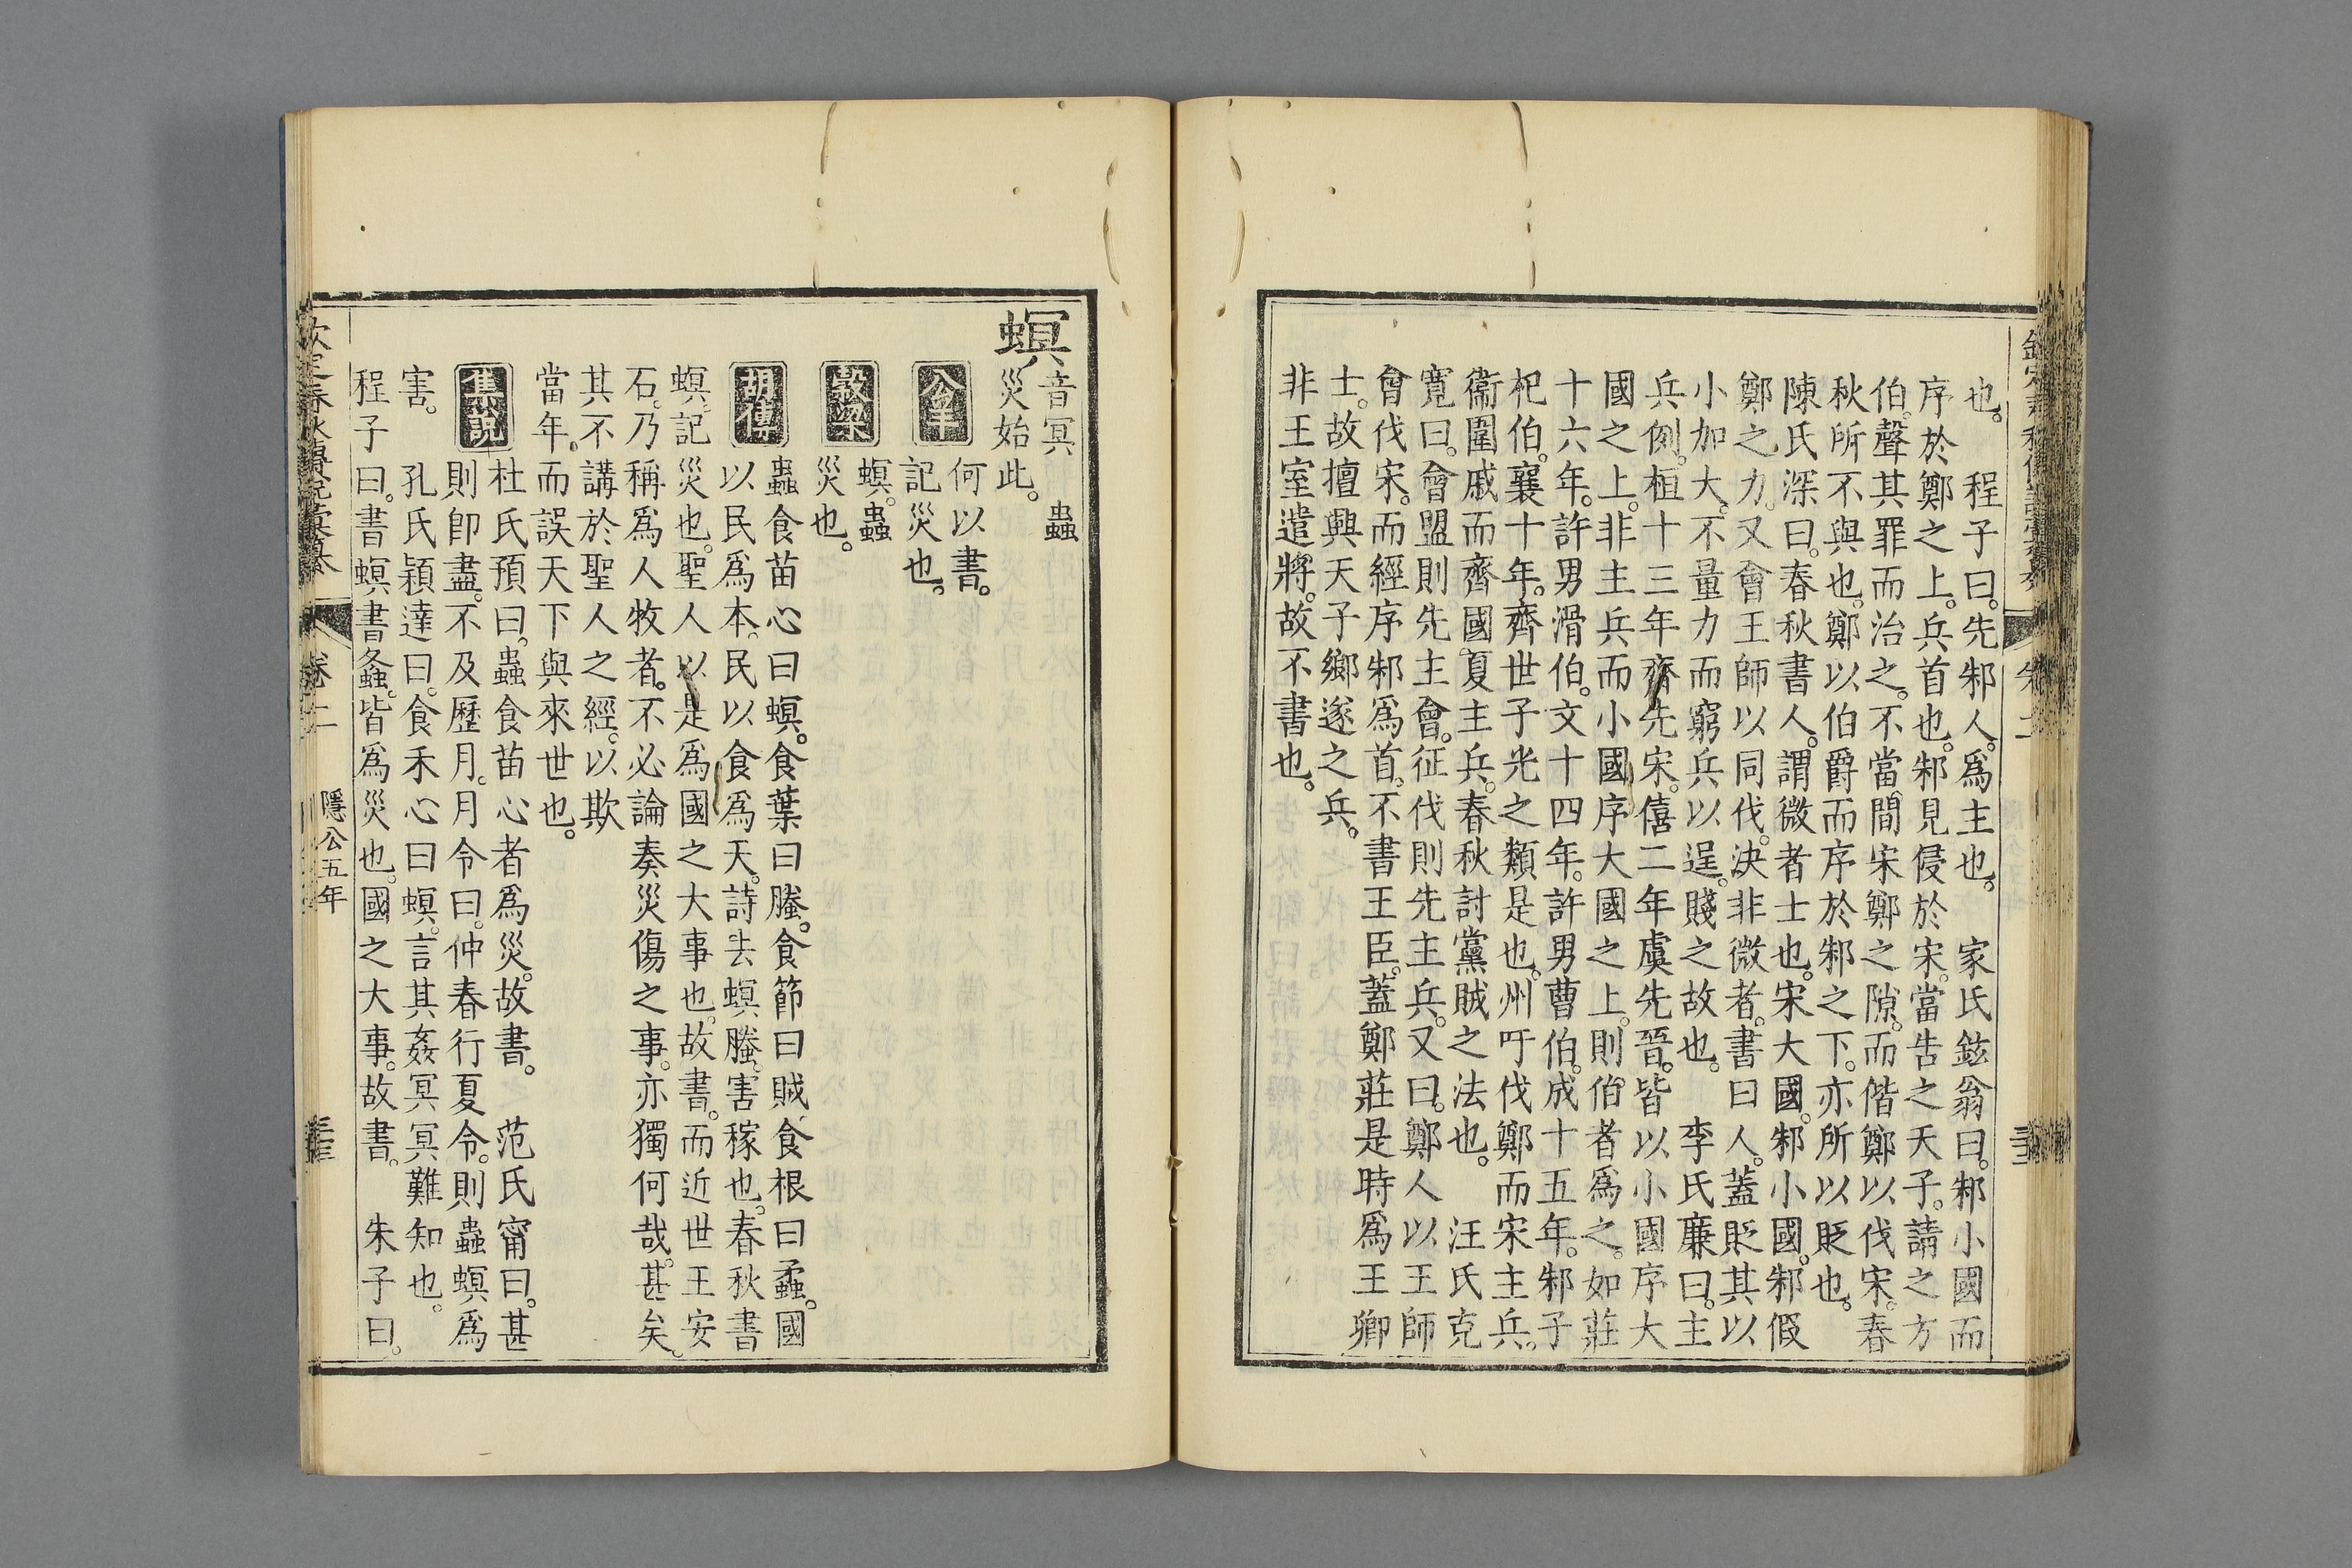 也。　程子曰。先邾人。爲主也。　家氏鉉翁曰。邾小國而
序於鄭之上。兵首也。邾見侵於宋。當告之天子。請之方
伯。聲其罪而治之。不當間宋鄭之隙。而偕鄭以伐宋。春
秋所不與也。鄭以伯爵而序於邾之下。亦所以貶也。
陳氏深曰。春秋書人。謂微者士也。宋大國。邾小國。邾假
鄭之力。又會王師以同伐。決非微者。書曰人。蓋貶其以
小加大。不量力而窮兵以逞。賤之故也。　李氏廉曰。主
兵例。桓十三年齊先宋。僖二年虞先晉。皆以小國序大
國之上。非主兵而小國序大國之上。則伯者爲之。如莊
十六年。許男滑伯。文十四年。許男曹伯。成十五年。邾子
杞伯。襄十年。齊世子光之類是也。州吁伐鄭而宋主兵。
衞圍戚而齊國夏主兵。春秋討黨賊之法也。　汪氏克
寬曰。會盟則先主會。征伐則先主兵。又曰。鄭人以王師
會伐宋。而經序邾爲首。不書王臣。蓋鄭莊是時爲王卿
士。故擅興天子鄉遂之兵。
非王室遣將。故不書也。
螟
音冥　蟲
災始此。
公羊
何以書。
記災也。
穀梁
螟。蟲
災也。
胡傳
蟲食苗心曰螟。食葉曰螣。食節曰賊。食根曰蟊。國
以民爲本。民以食爲天。詩去螟螣。害稼也。春秋書
螟。記災也。聖人以是爲國之大事也。故書。而近世王安
石。乃稱爲人牧者。不必論奏災傷之事。亦獨何哉。甚矣。
其不講於聖人之經。以欺
當年。而誤天下與來世也。
集說
杜氏預曰。蟲食苗心者爲災。故書。　范氏甯曰。甚
則卽盡。不及歷月。月令曰。仲春行夏令。則蟲螟爲
害。　孔氏穎達曰。食禾心曰螟。言其姦冥冥難知也。
程子曰。書螟書螽。皆爲災也。國之大事。故書。　朱子曰。
欽定春秋傳說彙纂
卷二
隱公五年